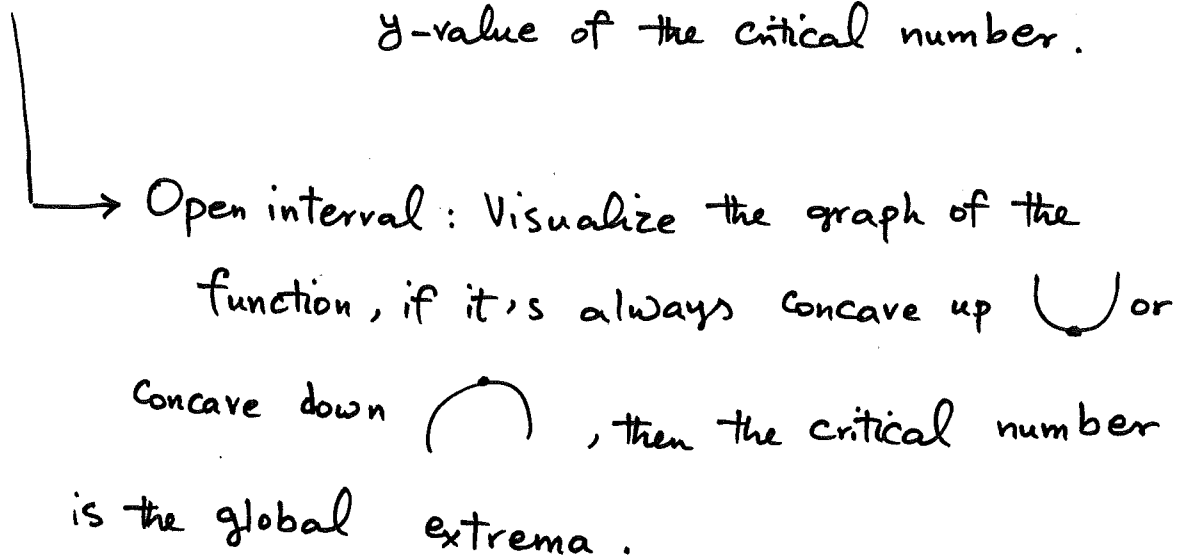 y-value of the critical number.
Open interval: Visualize the graph of the
function, if it's always concave up or
concave down , then the critical number
is the global extrema.